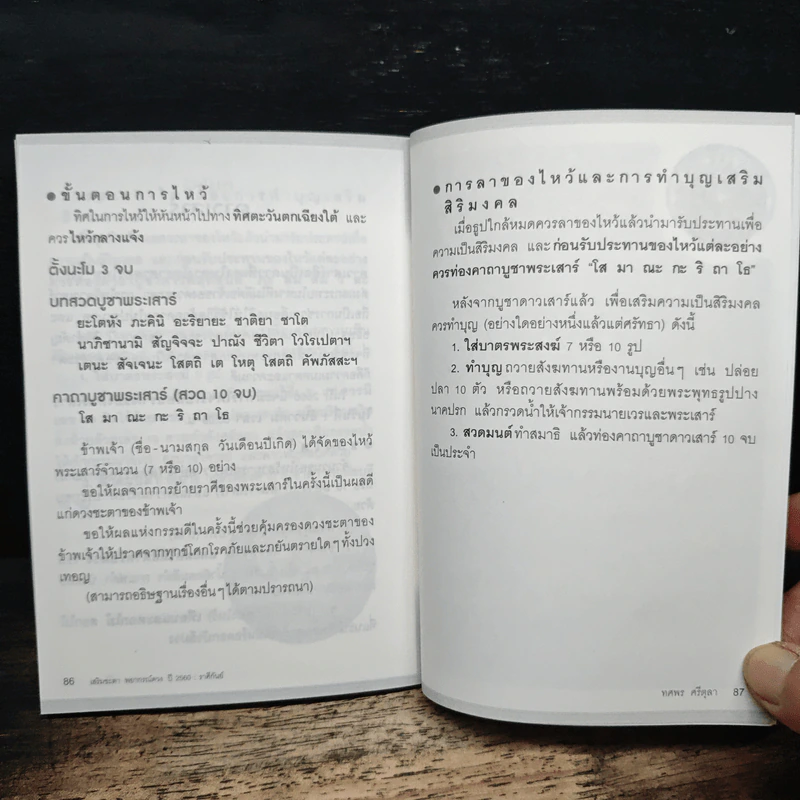 ● ขั้นตอนการไหว้
ทิศในการไหว้ให้หันหน้าไปทาง ทิศตะวันตกเฉียงใต้ และ
ควร ไหว้กลางแจ้ง
ตั้งนะโม 3 จบ
บทสวดบูชาพระเสาร์
ยะโตหัง ภะคินิ อะริยายะ ชาติยา ชาโต
นาภิชานามิ สัญจิจจะ ปาณัง ชีวิตา โวโรเปตาฯ
เตนะ สัจเจนะ โสตถิ เต โหตุ โสตถิ คัพภัสสะฯ
คาถาบูชาพระเสาร์ (สวด 10 จบ)
โส มา ณะ กะ ริ ถา โธ
ข้าพเจ้า (ชื่อ-นามสกุล วันเดือนปีเกิด) ได้จัดของไหว้
พระเสาร์จำนวน (7 หรือ 10) อย่าง
ขอให้ผลจากการย้ายราศีของพระเสาร์ในครั้งนี้เป็นผลดี
แก่ดวงชะตาของข้าพเจ้า
ขอให้ผลแห่งกรรมดีในครั้งนี้ช่วยคุ้มครองดวงชะตาของ
ข้าพเจ้าให้ปราศจากทุกข์โศกโรคภัยและภยันตรายใดๆ ทั้งปวง
เทอญ
(สามารถอธิษฐานเรื่องอื่นๆ ได้ตามปรารถนา)
86 เสริมชะตา พยากรณ์ดวง ปี 2560 : ราศีกันย์
● การลาของไหว้และการทำบุญเสริม
สิริมงคล
เมื่อธูปใกล้หมดควรลาของไหว้แล้วนำมารับประทานเพื่อ
ความเป็นสิริมงคล และ ก่อนรับประทานของไหว้แต่ละอย่าง
ควรท่องคาถาบูชาพระเสาร์ "โส มา ณะ กะ ริ ถา โธ"
หลังจากบูชาดาวเสาร์แล้ว เพื่อเสริมความเป็นสิริมงคล
ควรทำบุญ (อย่างใดอย่างหนึ่งแล้วแต่ศรัทธา) ดังนี้
1. ใส่บาตรพระสงฆ์ 7 หรือ 10 รูป
2. ทำบุญ ถวายสังฆทานหรืองานบุญอื่นๆ เช่น ปล่อย
ปลา 10 ตัว หรือถวายสังฆทานพร้อมด้วยพระพุทธรูปปาง
นาคปรก แล้วกรวดน้ำให้เจ้ากรรมนายเวรและพระเสาร์
3. สวดมนต์ ทำสมาธิ แล้วท่องคาถาบูชาดาวเสาร์ 10 จบ
เป็นประจำ
ทศพร ศรีตุลา 87